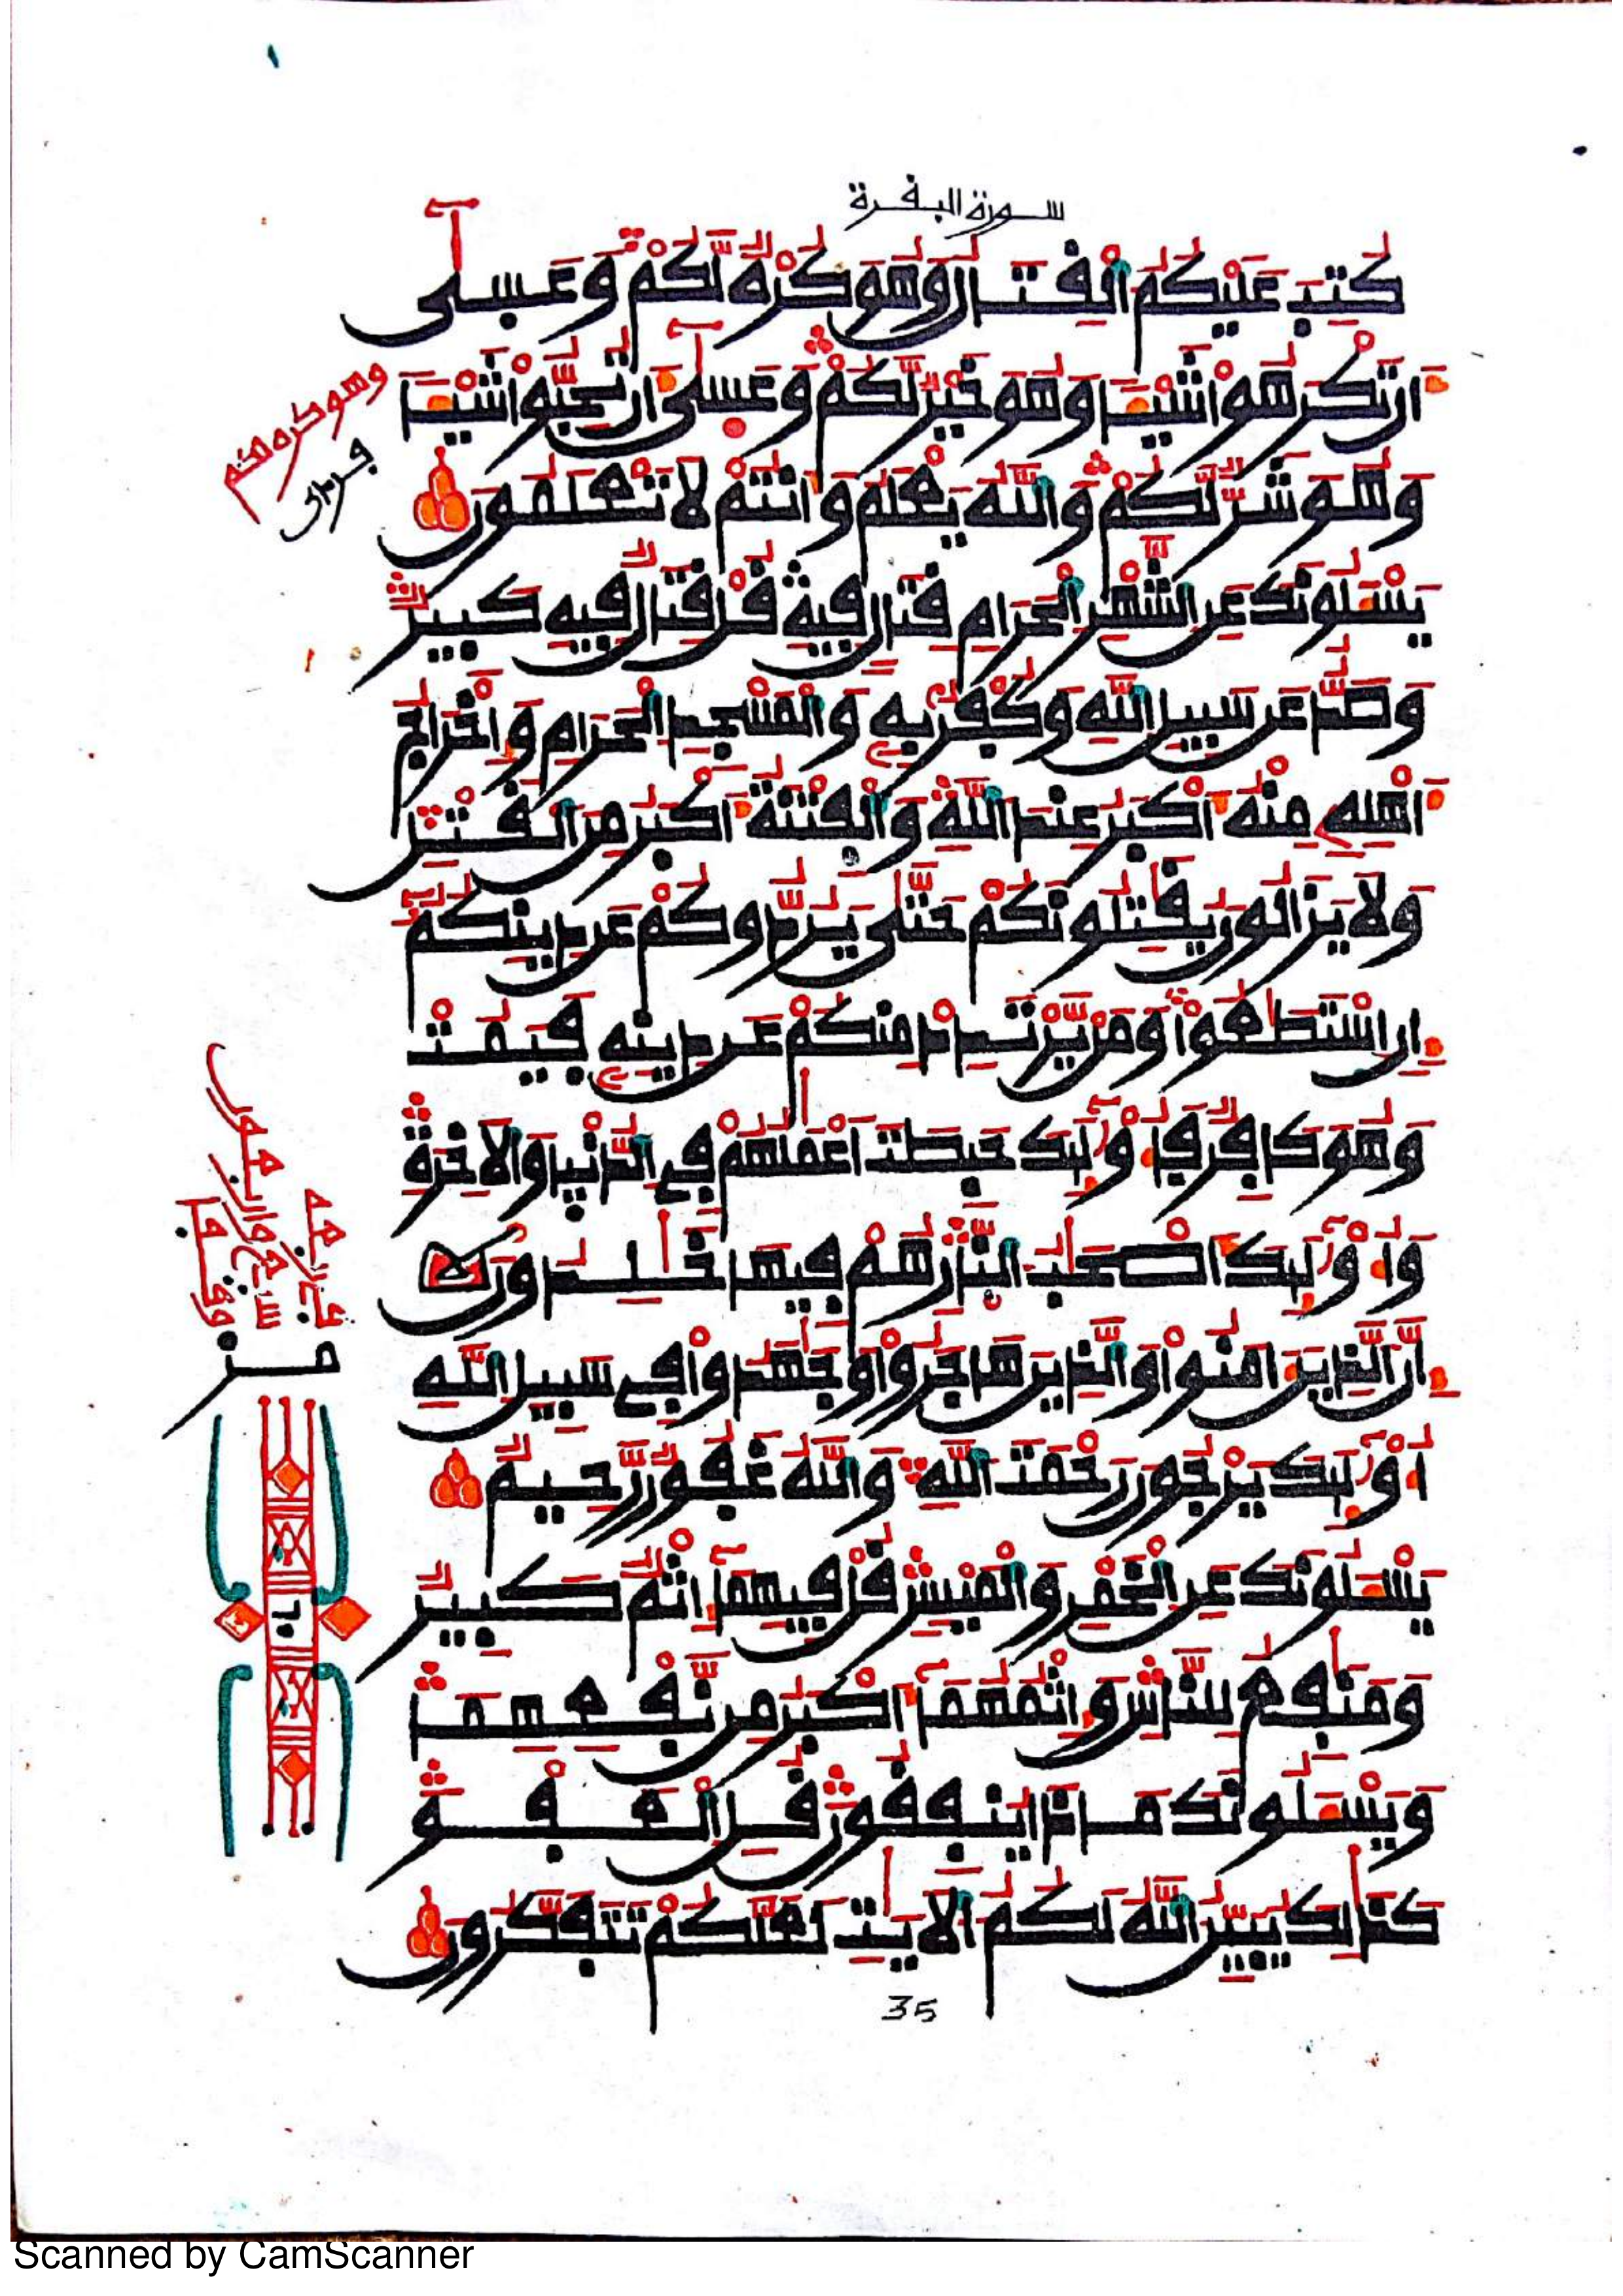 سورة البقرة
كُتِبَ عَلَيْكُمُ الْقِتَالُ وَهُوَ كُرْهٌ لَّكُمْ وَعَسَىٰ
أَن تَكْرَهُوا شَيْـًٔا وَهُوَ خَيْرٌ لَّكُمْ وَعَسَىٰ أَن تُحِبُّوا شَيْـًٔا
وَهُوَ شَرٌّ لَّكُمْ وَاللَّهُ يَعْلَمُ وَأَنتُمْ لَا تَعْلَمُونَ
يَسْـَٔلُونَكَ عَنِ الشَّهْرِ الْحَرَامِ قِتَالٍ فِيهِ قُلْ قِتَالٌ فِيهِ كَبِيرٌ
وَصَدٌّ عَن سَبِيلِ اللَّهِ وَكُفْرٌ بِهِ وَالْمَسْجِدِ الْحَرَامِ وَإِخْرَاجُ
أَهْلِهِ مِنْهُ أَكْبَرُ عِندَ اللَّهِ وَالْفِتْنَةُ أَكْبَرُ مِنَ الْقَتْلِ
وَلَا يَزَالُونَ يُقَٰتِلُونَكُمْ حَتَّىٰ يَرُدُّوكُمْ عَن دِينِكُمْ
إِنِ اسْتَطَٰعُوا وَمَن يَرْتَدِدْ مِنكُمْ عَن دِينِهِ فَيَمُتْ
وَهُوَ كَافِرٌ فَأُوْلَٰٓئِكَ حَبِطَتْ أَعْمَٰلُهُمْ فِي الدُّنْيَا وَالْآخِرَةِ
وَأُوْلَٰٓئِكَ أَصْحَٰبُ النَّارِ هُمْ فِيهَا خَٰلِدُونَ
إِنَّ الَّذِينَ ءَامَنُوا وَالَّذِينَ هَاجَرُوا وَجَٰهَدُوا فِي سَبِيلِ اللَّهِ
أُوْلَٰٓئِكَ يَرْجُونَ رَحْمَتَ اللَّهِ وَاللَّهُ غَفُورٌ رَّحِيمٌ
يَسْـَٔلُونَكَ عَنِ الْخَمْرِ وَالْمَيْسِرِ قُلْ فِيهِمَا إِثْمٌ كَبِيرٌ
وَمَنَٰفِعُ لِلنَّاسِ وَإِثْمُهُمَا أَكْبَرُ مِن نَّفْعِهِمَا
وَيَسْـَٔلُونَكَ مَاذَا يُنفِقُونَ قُلِ الْعَفْوَ
كَذَٰلِكَ يُبَيِّنُ اللَّهُ لَكُمُ الْآيَٰتِ لَعَلَّكُمْ تَتَفَكَّرُونَ
وهو كره لكم
35
Scanned by CamScanner